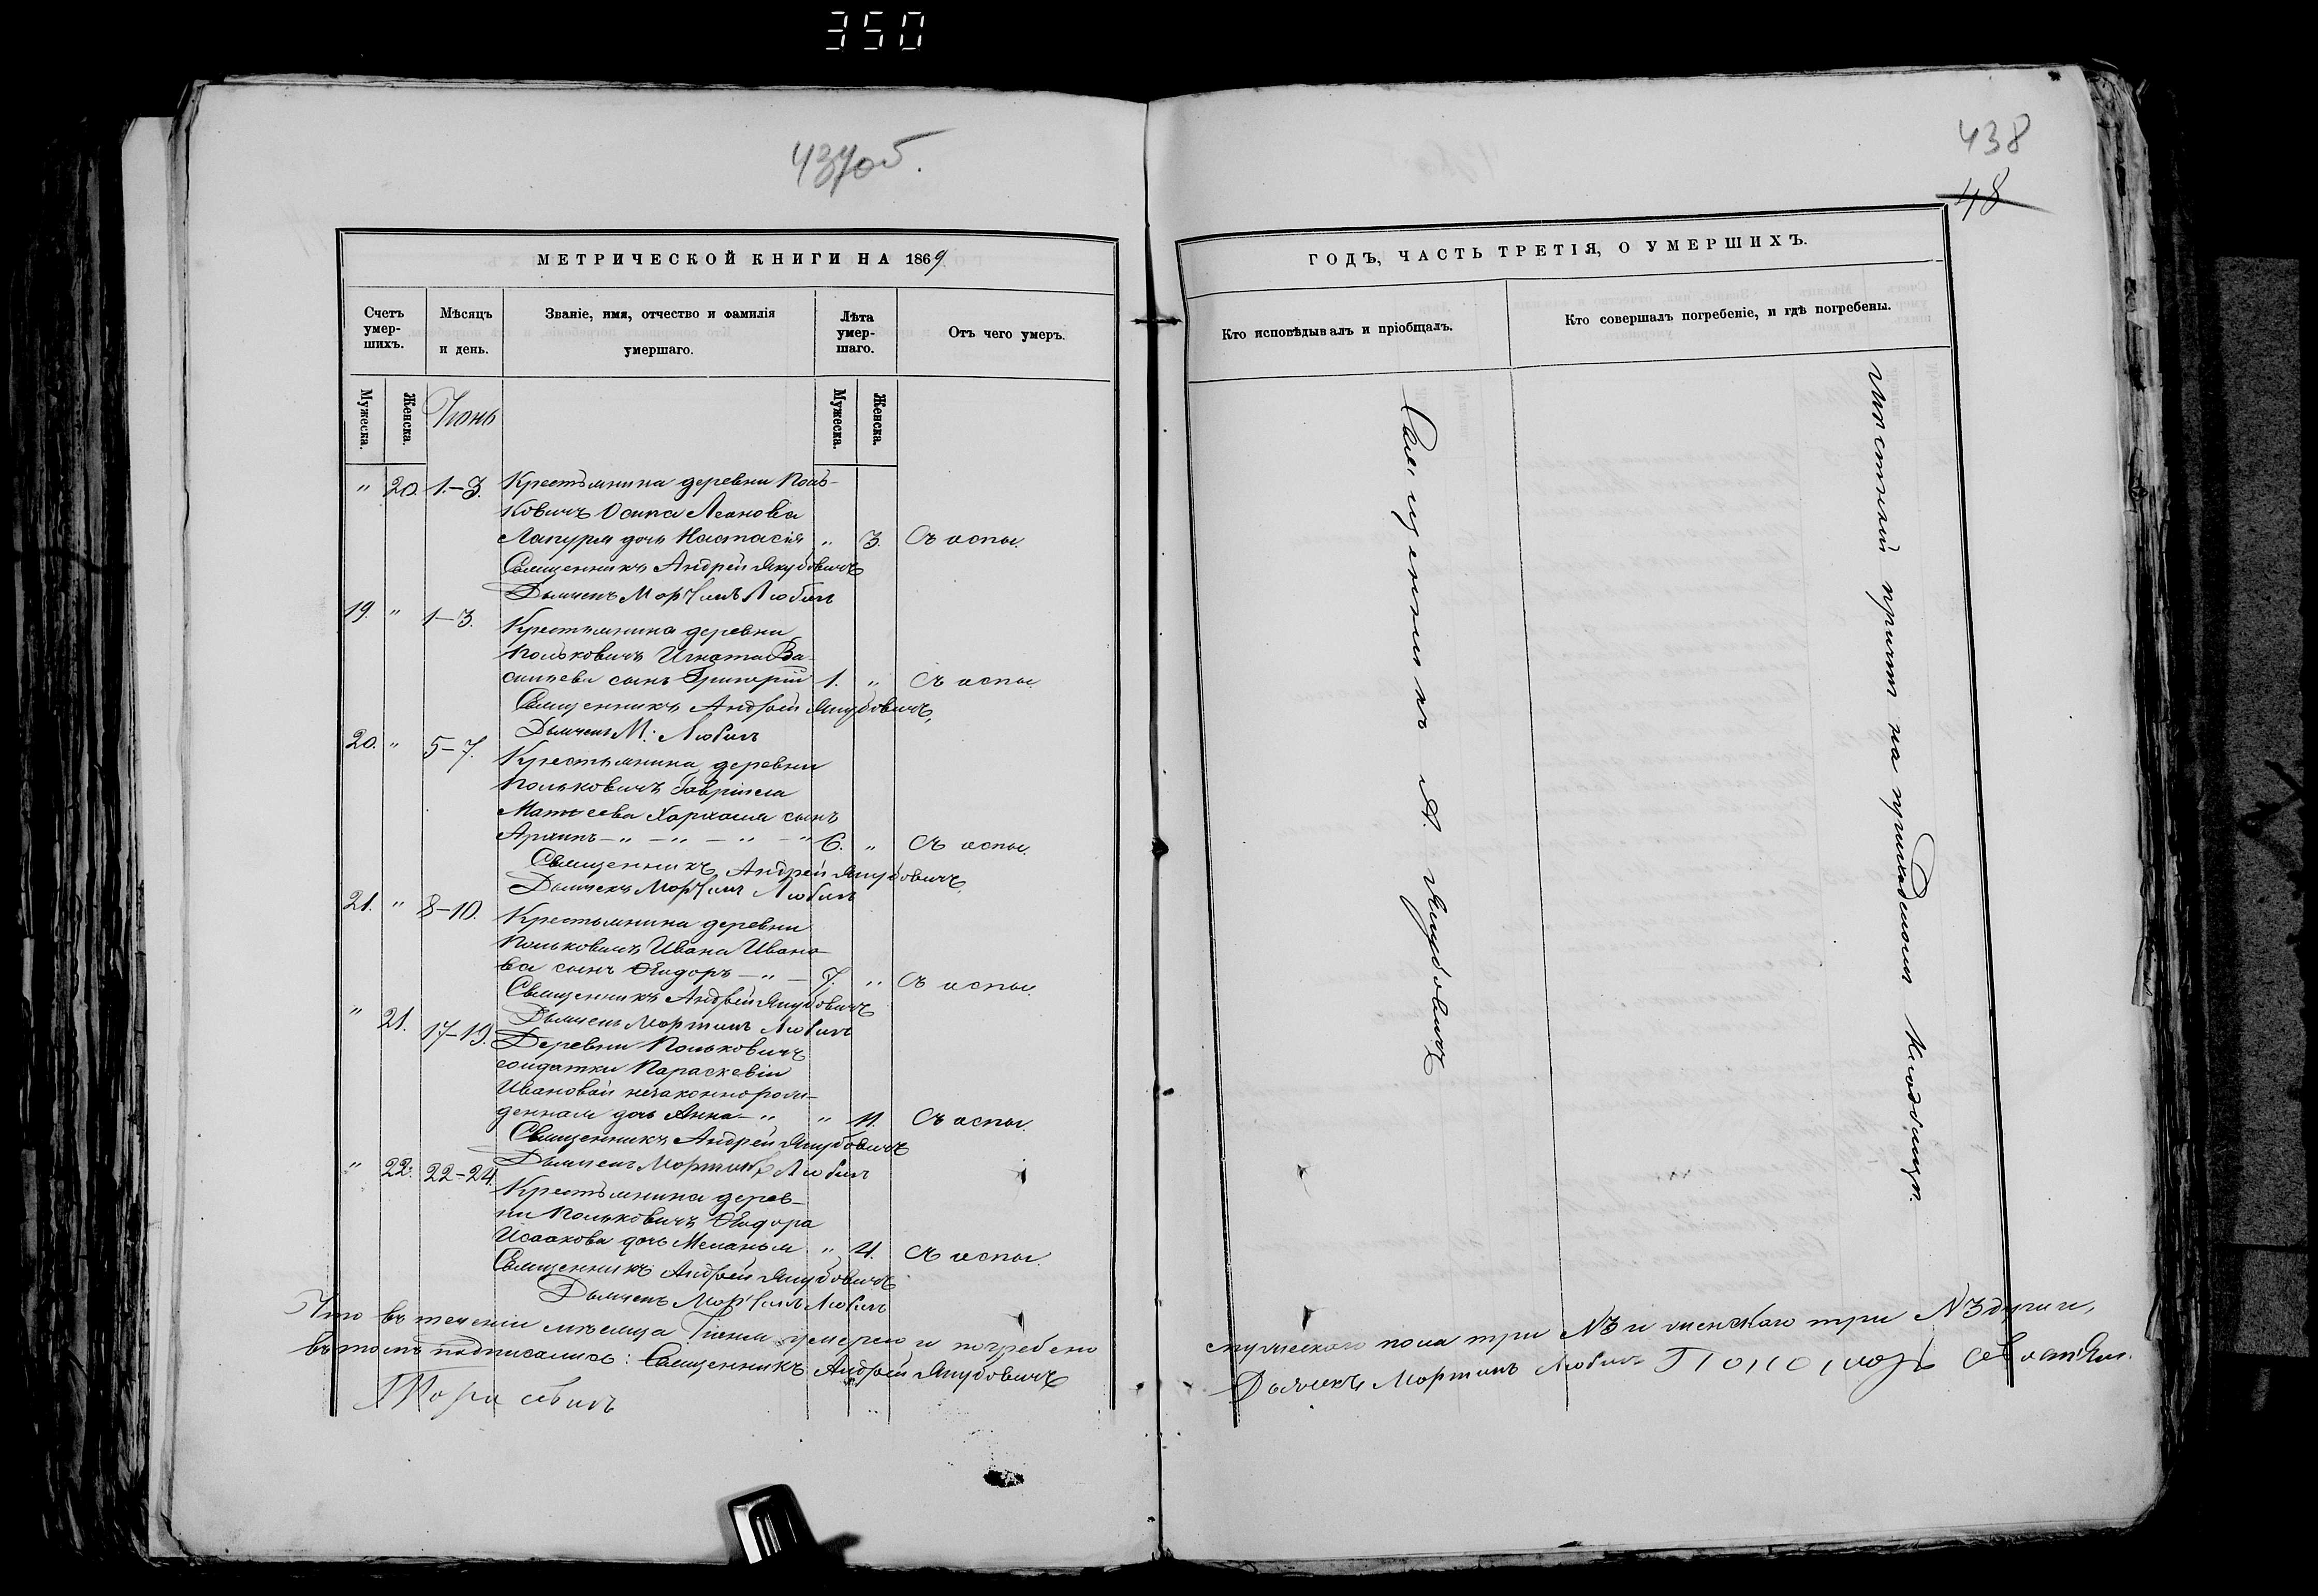 350
437об.
МЕТРИЧЕСКОЙ КНИГИ НА 1869
Счетъ умер-шихъ.
Мѣсяцъ и день.
Званіе, имя, отчество и фамилія умершаго.
Лѣта умер-шаго.
Отъ чего умеръ.
Мужеска.
Женска.
Іюнь
Мужеска.
Женска.
" 20. 1.-3. Крестьянина деревни Поль-
ковичъ Осипа Леонова
Лапуря дочь Настасія " 3. Съ оспы.
Священникъ Андрей Якубовичъ
Дьячекъ Мартинъ Любичъ
19. " 1-3. Крестьянина деревни
Польковичъ Игната Ва-
сильева сынъ Григорій 1. " Съ оспы.
Священникъ Андрей Якубовичъ,
Дьячекъ М. Любичъ
20. " 5-7. Крестьянина деревни
Польковичъ Гавріила
Матѳеева сынъ
Архипъ - " - " - " - " 6. " Съ оспы.
Священникъ Андрей Якубовичъ
Дьячекъ Мартинъ Любичъ
21. " 8-10. Крестьянина деревни
Польковичъ Ивана Ивано-
ва сынъ Ѳеодоръ - " - 7. " Съ оспы.
Священникъ Андрей Якубовичъ
Дьячекъ Мартинъ Любичъ
" 21. 17-19. Деревни Польковичъ
солдатки Параскевіи
Ивановой незаконнорож-
денная дочь Анна - " " 11. Съ оспы.
Священникъ Андрей Якубовичъ
Дьячекъ Мартинъ Любичъ
" 22. 22-24. Крестьянина дерев-
ни Польковичъ Ѳеодора
Исаакова дочь Меланья " 4. Съ оспы.
Священникъ Андрей Якубовичъ
Дьячекъ Мартинъ Любичъ
Что въ теченіи мѣсяца Іюня умерло и погребено
въ томъ подписались: Священникъ Андрей Якубовичъ
438
48
ГОДЪ, ЧАСТЬ ТРЕТІЯ, О УМЕРШИХЪ.
Кто исповѣдывалъ и пріобщалъ.
Кто совершалъ погребеніе, и гдѣ погребены.
Священникъ А. Якубовичъ
Мѣстный причтъ на приходскомъ кладбищѣ.
мужескаго пола три №3 и женскаго три №3 души,
Дьячекъ Мартинъ Любичъ